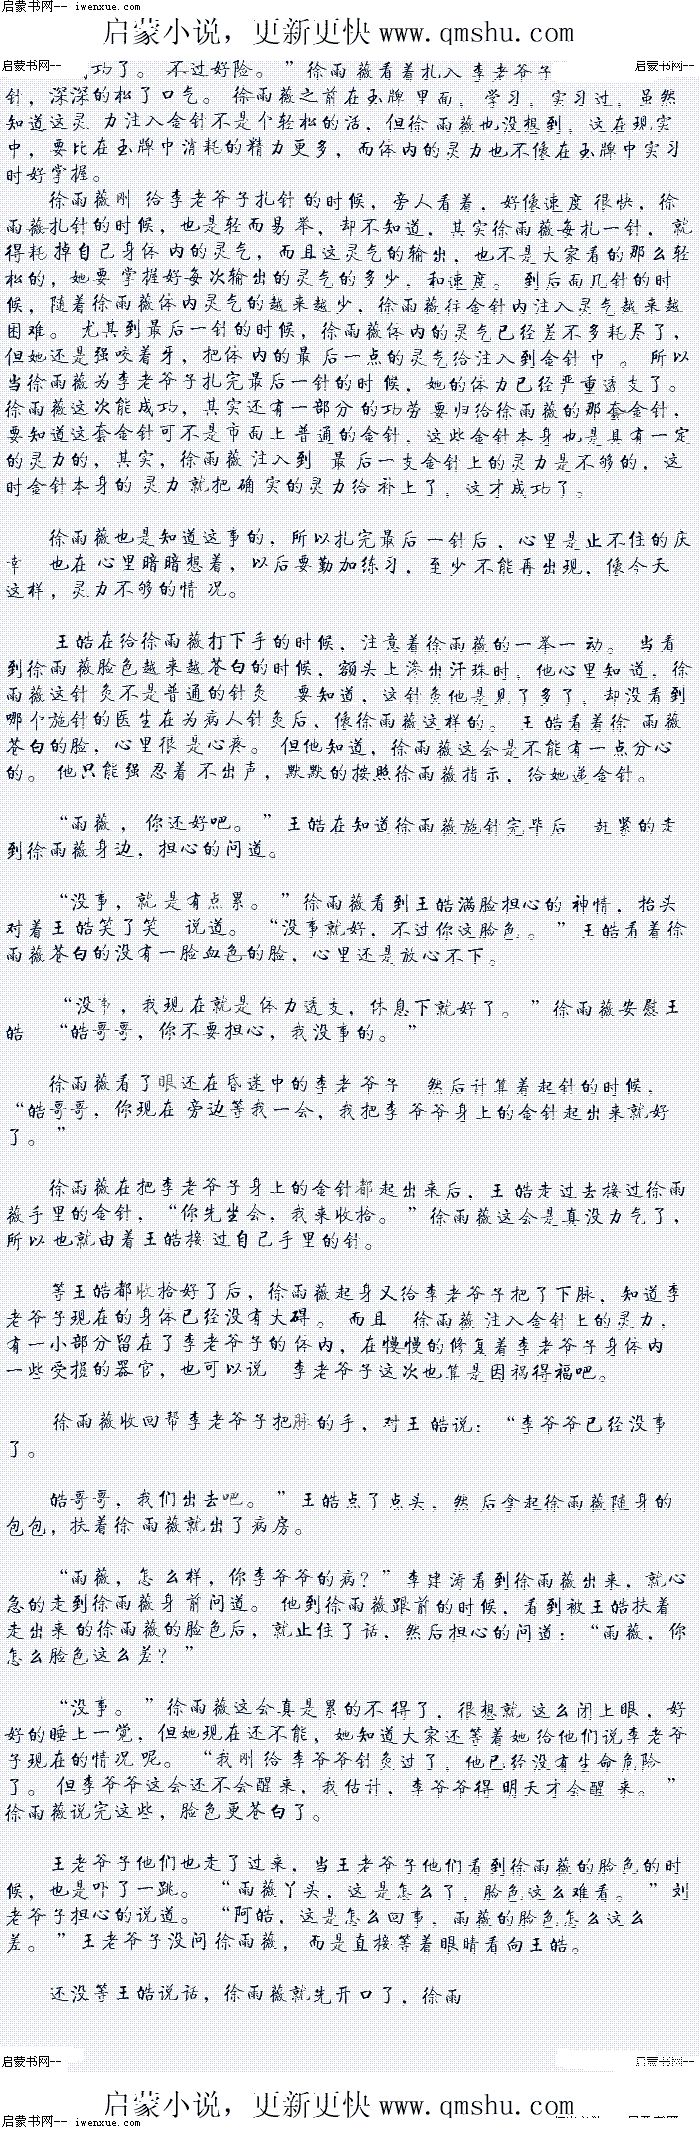 启蒙书网-- iwenxue.com
启蒙小说，更新更快 www.qmshu.com
启蒙书网--
功了。 不过好险。”徐雨薇看着扎入李老爷子
针，深深的松了口气。 徐雨薇之前在玉牌里面，学习，实习过，虽然
知道这灵 力注入金针不是个轻松的活，但徐雨薇也没想到，这在现实
中，要比在玉牌中消耗的精力更多，而体内的灵力也不像在玉牌中实习
时好掌握。
徐雨薇刚 给李老爷子扎针的时候，旁人看着，好像速度很快，徐
雨薇扎针的时候，也是轻而易举，却不知道，其实徐雨薇每扎一针，就
得耗掉自己身体内的灵气，而且这灵气的输出，也不是大家看的那么轻
松的，她要掌握好每次输出的灵气的多少，和速度。 到后面几针的时
候，随着徐雨薇体内灵气的越来越少，徐雨薇往金针内注入灵气越来越
困难。 尤其到最后一针的时候，徐雨薇体内的灵气已经差不多耗尽了，
但她还是强咬着牙，把体内的最后一点的灵气给注入到金针中 。 所以
当徐雨薇为李老爷子扎完最后一针的时候，她的体力已经严重透支了。
徐雨薇这次能成功，其实还有一部分的功劳要归给徐雨薇的那套金针，
要知道这套金针可不是市面上普通的金针，这些金针本身也是具有一定
的灵力的，其实，徐雨薇注入到 最后一支金针上的灵力是不够的，这
时金针本身的灵力就把确实的灵力给补上了，这才成功了。
徐雨薇也是知道这事的，所以扎完最后一针后，心里是止不住的庆
幸 也在心里暗暗想着，以后要勤加练习，至少不能再出现，像今天
这样，灵力不够的情况。
王皓在给徐雨薇打下手的时候，注意着徐雨薇的一举一动。 当看
到徐雨薇脸色越来越苍白的时候，额头上渗出汗珠时，他心里知道，徐
雨薇这针灸不是普通的针灸 要知道，这针灸他是见了多了，却没看到
哪个施针的医生在为病人针灸后，像徐雨薇这样的。 王皓看着徐雨薇
苍白的脸，心里很是心疼。 但他知道，徐雨薇这会是不能有一点分心
的。 他只能强忍着不出声，默默的按照徐雨薇指示，给她递金针。
“雨薇，你还好吧。”王皓在知道徐雨薇施针完毕后 赶紧的走
到徐雨薇身边，担心的问道。
“没事，就是有点累。”徐雨薇看到王皓满脸担心的神情，抬头
对着王皓笑了笑 说道。 “没事就好，不过你这脸色。”王皓看着徐
雨薇苍白的没有一脸血色的脸，心里还是放心不下。
“没事，我现在就是体力透支，休息下就好了。”徐雨薇安慰王
皓 “皓哥哥，你不要担心，我没事的。”
徐雨薇看了眼还在昏迷中的李老爷子 然后计算着起针的时候，
“皓哥哥，你现在旁边等我一会，我把李爷爷身上的金针起出来就好
了。”
徐雨薇在把李老爷子身上的金针都起出来后，王皓走过去接过徐雨
薇手里的金针，“你先坐会，我来收拾。”徐雨薇这会是真没力气了，
所以也就由着王皓接过自己手里的针。
等王皓都收拾好了后，徐雨薇起身又给李老爷子把了下脉，知道李
老爷子现在的身体已经没有大碍。 而且 徐雨薇注入金针上的灵力，
有一小部分留在了李老爷子的体内，在慢慢的修复着李老爷子身体内
一些受损的器官，也可以说 李老爷子这次也算是因祸得福吧。
徐雨薇收回帮李老爷子把脉的手，对王皓说：“李爷爷已经没事
了。
皓哥哥，我们出去吧。”王皓点了点头，然后拿起徐雨薇随身的
包包，扶着徐雨薇就出了病房。
“雨薇，怎么样，你李爷爷的病？”李建涛看到徐雨薇出来，就心
急的走到徐雨薇身前问道。 他到徐雨薇跟前的时候，看到被王皓扶着
走出来的徐雨薇的脸色后，就止住了话，然后担心的问道：“雨薇，你
怎么脸色这么差？”
“没事。”徐雨薇这会真是累的不得了，很想就这么闭上眼，好
好的睡上一觉，但她现在还不能，她知道大家还等着她给他们说李老爷
子现在的情况呢。 “我刚给李爷爷针灸过了，他已经没有生命危险
了。 但李爷爷这会还不会醒来，我估计，李爷爷得明天才会醒来。”
徐雨薇说完这些，脸色更苍白了。
王老爷子他们也走了过来，当王老爷子他们看到徐雨薇的脸色的时
候，也是吓了一跳。 “雨薇丫头，这是怎么了，脸色这么难看。”刘
老爷子担心的说道。 “阿皓，这是怎么回事，雨薇的脸色怎么这么
差。”王老爷子没问徐雨薇，而是直接等着眼睛看向王皓。
还没等王皓说话，徐雨薇就先开口了，徐雨
启蒙书网--
启蒙小说，更新更快 www.qmshu.com
启蒙书网-- iwenxue.com